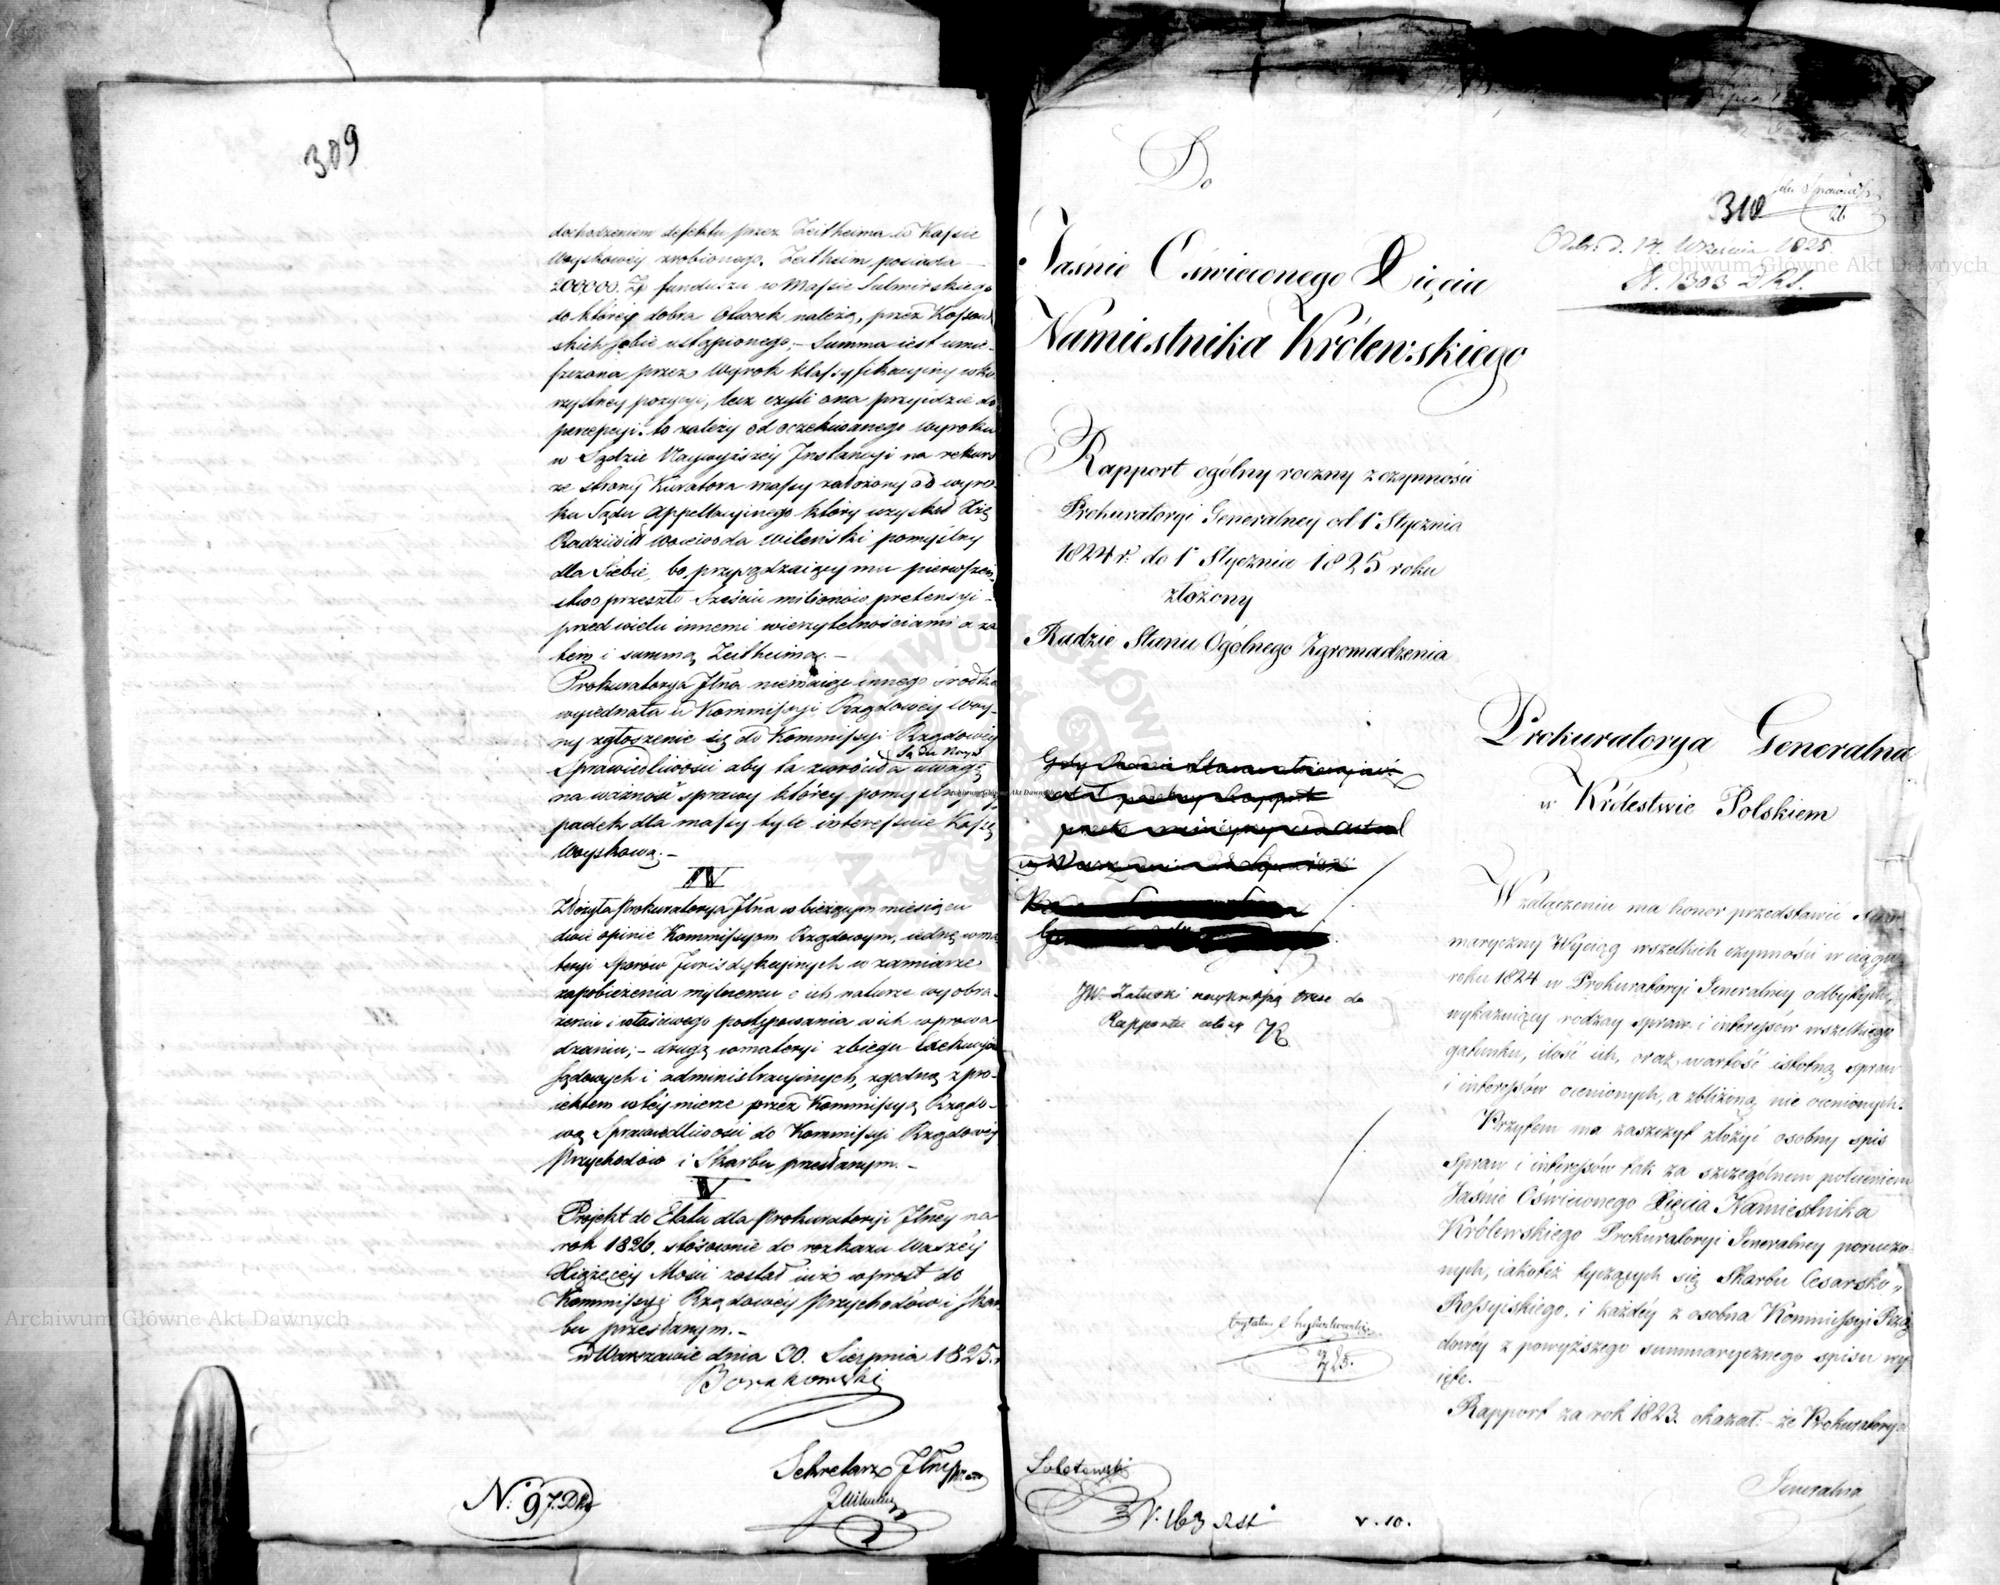 309
dochodzeniem defektu przez Zeitheima w Kaſsie
Woyskowey zrobionego. Zeitheim posiada
200000. Zp funduszu w Maſsie Sulmirskiego
do którey dobra Otwock należą, przez Koſsow
skich sobie ustąpionego. – Summa iest umie-
ſzczona przez Wyrok Klaſsyfikacyiny w ko-
rzystney pozycyi, lecz czyli ona przyidzie do
percepcyi, to zależy od oczekiwanego wyroku
w Sądzie Naywyższéy Instancyi na rekurs
ze strony Kuratora maſsy założony od wyro-
ku Sądu Appellacyinego który uzyskał Xże
Radziwiłł Woiewoda Wileński pomyślny
dla Siebie, bo przysądzaiący mu pierwszeń-
stwo przeszło Sześciu milionów pretensyi
przed wielu innemi wierzytelnościami a za
tem i summą Zeitheima. –
Prokuratorya Jlna nie innego środka
wyiednała u Kommiſsyi Rządowéy Woy-
ny zgłoszenie się do Kommiſsyi Rządowéy
Sądu Nayw
Sprawiedliwości aby ta zwróciła uwagę
na ważność sprawy którey pomyślny
padek dla maſsy tyle intereſsuie Kaſsę
Woyskową. –
IV
Złożyła Prokuratorya Jlna w bieżącym miesiącu
dwie opinie Kommiſsyom Rządowym, iednę w ma
teryi Sporów Jurisdykcyinych w zamiarze
zapobieżenia mylnemu o ich naturze wyobra-
żeniu i właściwego postępowania w ich wprowa
dzaniu; – drugą w materyi zbiegu Exekucyi
sądowych i administracyinych, zgodną z pro-
iektem w téy mierze przez Kommiſsyą Rządo-
wą Sprawiedliwości do Kommiſsyi Rządowéy
Przychodów i Skarbu przesłanym. –
V
Projekt do Etatu dla Prokuratoryi Jlney na
rok 1826. stósownie do rozkazu Waszéy
Xiążęcéy Mości został iuż wprost do
Kommiſsyi Rządowéy Przychodów i Skar
bu przesłanym. –
w Warszawie dnia 30. Sierpnia 1825. r
Borakowski
Sekretarz Jlny
N. 97. D
Do
Jaśnie Oświeconego Xięcia
Namiestnika Królewskiego
310
26
Odebr. d. 14. Września 1825
N. 1303 D RS.
Rapport ogólny roczny z czynności
Prokuratoryi Generalney od 1° Stycznia
1824 r. do 1° Stycznia 1825 roku
złożony
Radzie Stanu Ogólnego Zgromadzenia
Prokuratorya Generalna
w Królestwie Polskiem
JW. Załuski
Rapportu
W załączeniu ma honor przedstawić Sum
maryczny Wyciąg wszelkich czynności w ciągu
roku 1824 w Prokuratoryi Jeneralney odbytych,
wykazuiący rodzay spraw i intereſsów wszelkiego
gatunku, ilość ich, oraz wartość istotną spraw
i intereſsów ocenionych, a zbliżoną nie ocenionych.
Przytem ma zaszczyt złożyć osobny spis
Spraw i intereſsów tak za szczególnem poleceniem
Jaśnie Oświeconego Xięcia Namiestnika
Królewskiego Prokuratoryi Jeneralney poruczo-
nych, iakotéż tyczących się Skarbu Cesarsko"
Roſsyiskiego, i każdéy z osobna Kommiſsyi Rzą
dowéy z powyższego summarycznego spisu wy
ięte. –
Rapport za rok 1823. okazał – że Prokuratorya
Jeneralna
N. 163
v. 10.
Archiwum Główne Akt Dawnych
Archiwum Główne Akt Dawnych
Archiwum Główne Akt Dawnych